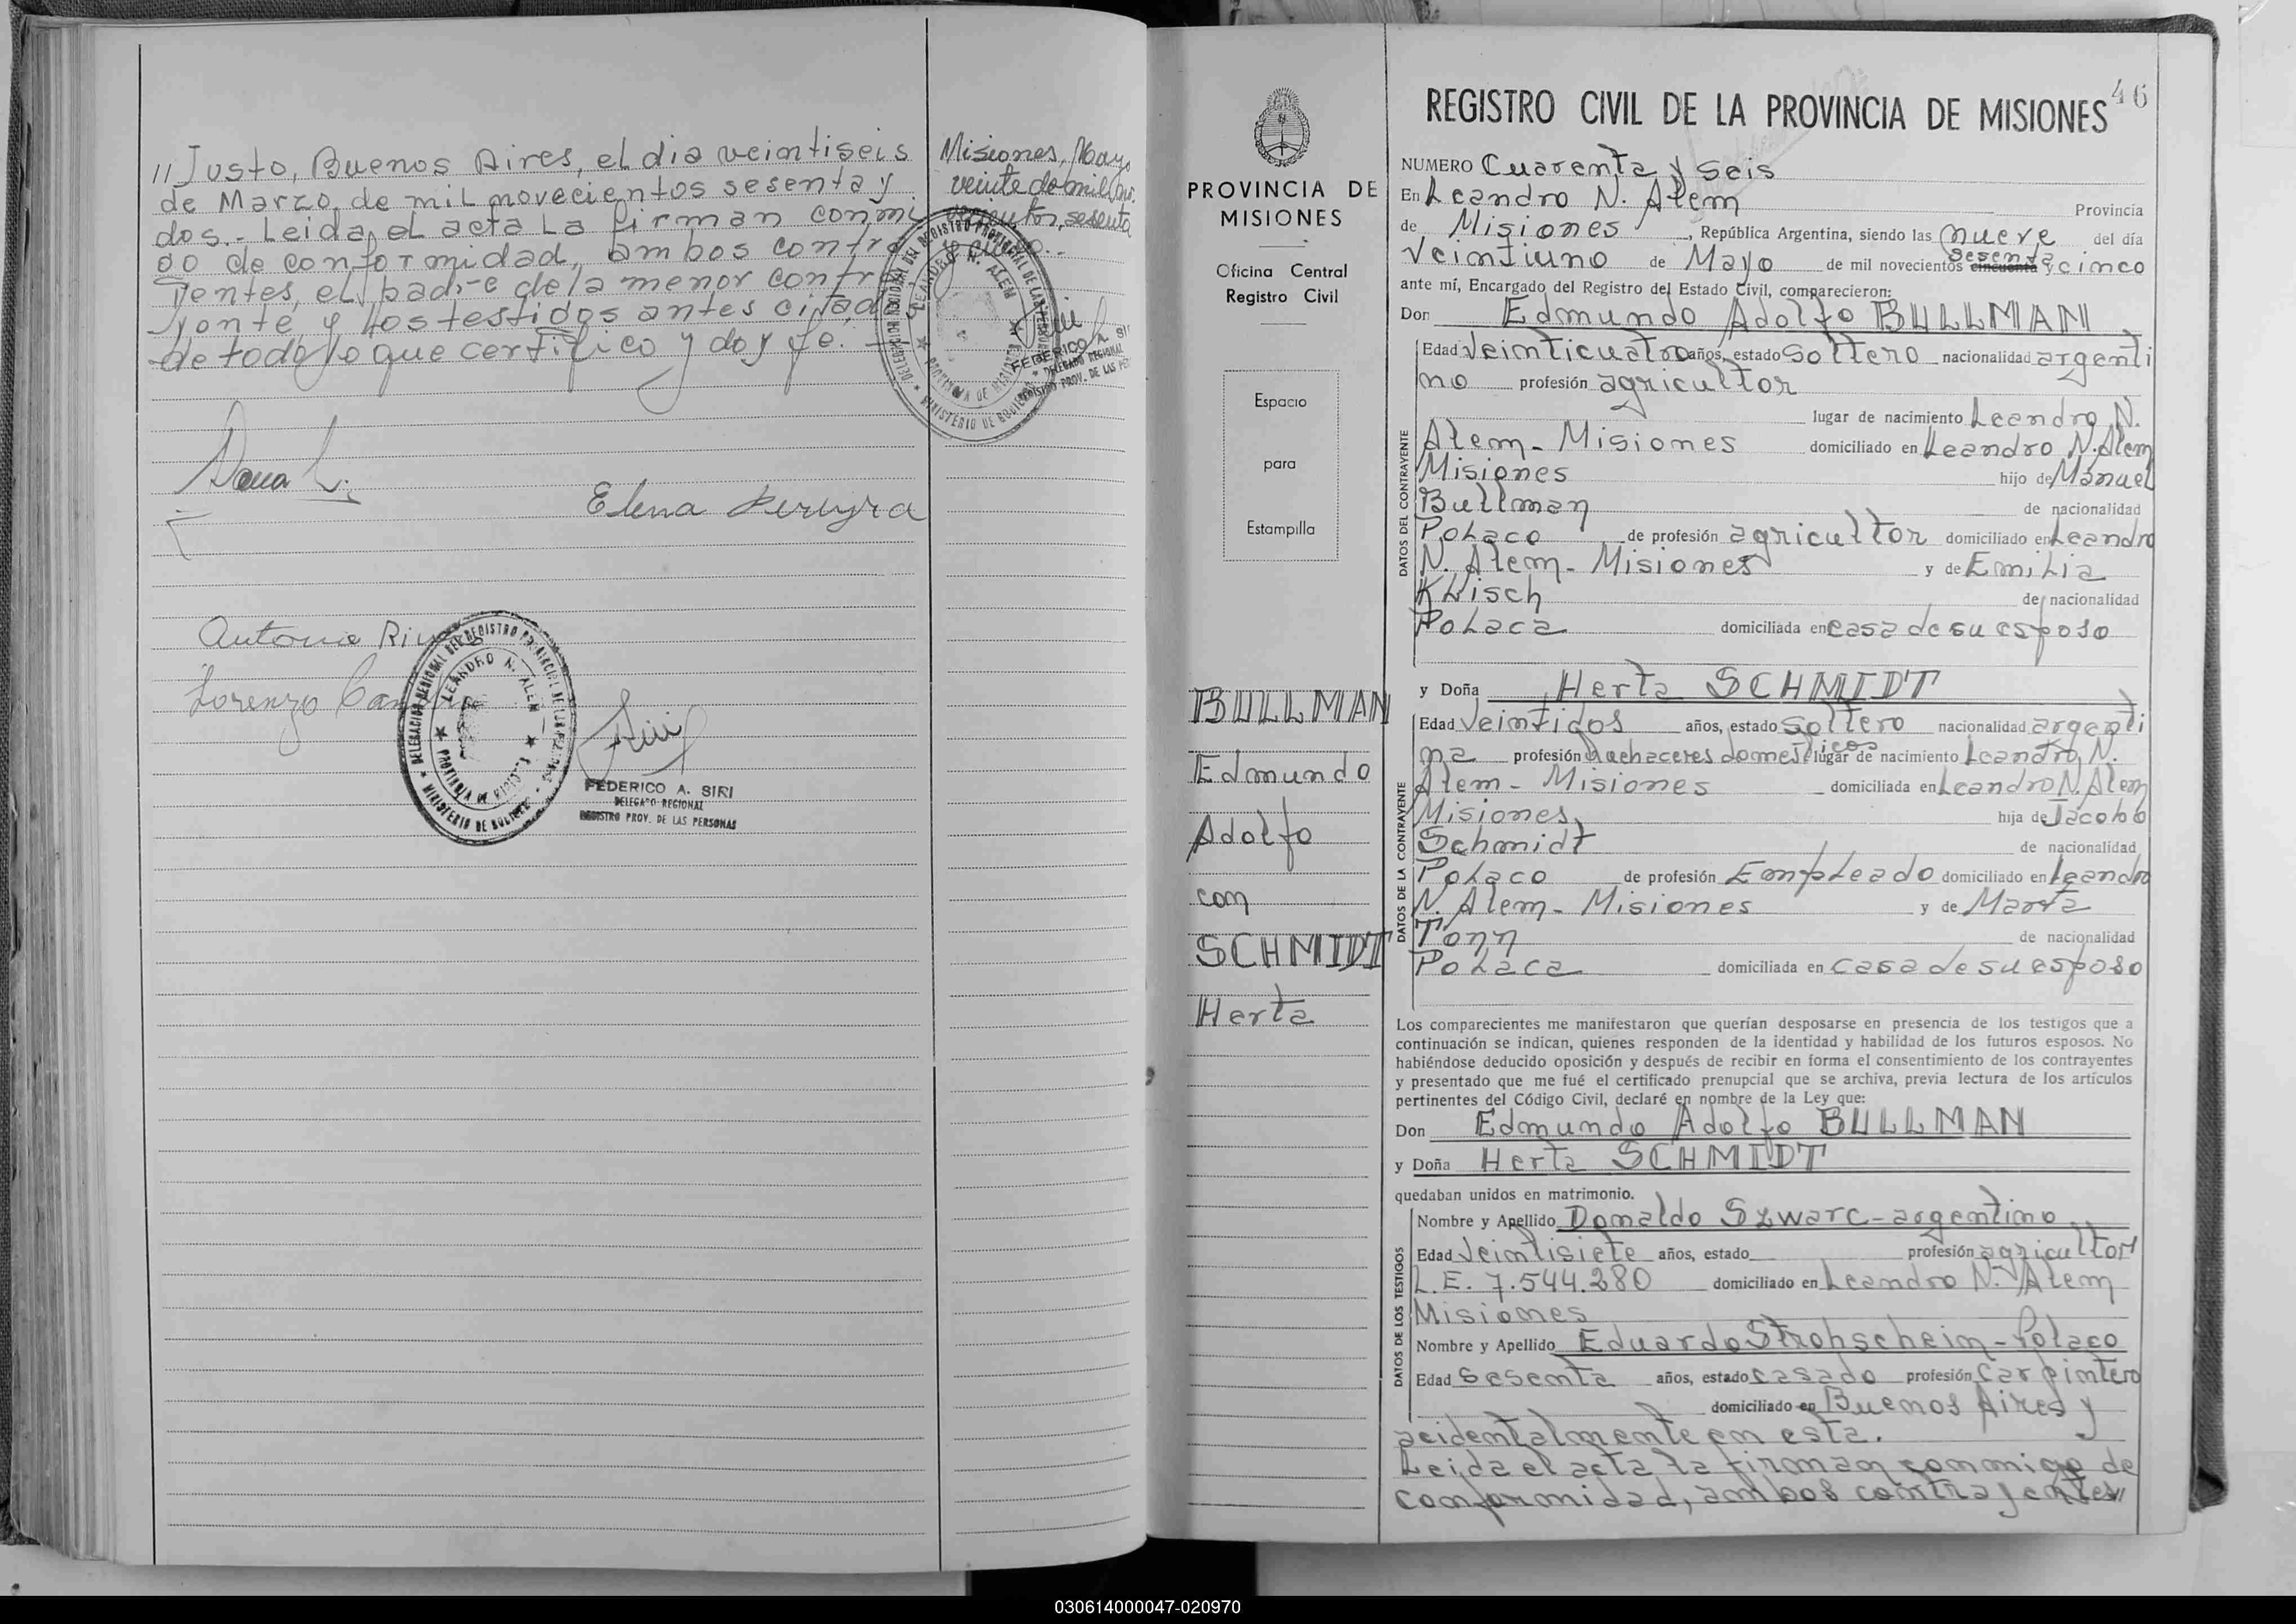 // Justo, Buenos Aires, el dia veintiseis
de Marzo de mil novecientos sesenta y
dos.- Leida el acta la firman conmi
go de conformidad, ambos contra
yentes, el padre de la menor contra
yente y los testigos antes citados
de todo lo que certifico y doy fe.-
Misiones, Mayo
veinte de mil no-
vecientos sesenta
y cinco.-
DELEGACION REGIONAL DEL REGISTRO PROVINCIAL DE LAS PERSONAS
LEANDRO N. ALEM
PROVINCIA DE MISIONES
MINISTERIO DE GOBIERNO
FEDERICO A. SIRI
DELEGADO REGIONAL
REGISTRO PROV. DE LAS PER
Elena Pereyra
Antonio
Lorenzo
DELEGACION REGIONAL DEL REGISTRO PROVINCIAL DE LAS PERSONAS
LEANDRO N. ALEM
PROVINCIA DE MISIONES
MINISTERIO DE GOBIERNO
FEDERICO A. SIRI
DELEGADO REGIONAL
REGISTRO PROV. DE LAS PERSONAS
PROVINCIA DE
MISIONES
Oficina Central
Registro Civil
Espacio
para
Estampilla
BULLMAN
Edmundo
Adolfo
con
SCHMIDT
Herta
46
REGISTRO CIVIL DE LA PROVINCIA DE MISIONES
NUMERO Cuarenta y seis
En Leandro N. Alem Provincia
de Misiones, República Argentina, siendo las nueve del día
Veintiuno de Mayo de mil novecientos sesenta cincuenta y cinco
ante mí, Encargado del Registro del Estado Civil, comparecieron:
Don Edmundo Adolfo BULLMAN
DATOS DEL CONTRAYENTE
Edad Veinticuatro años, estado soltero nacionalidad argenti
no profesión agricultor
lugar de nacimiento Leandro N.
Alem- Misiones domiciliado en Leandro N. Alem
Misiones hijo de Manuel
Bullman de nacionalidad
Polaco de profesión agricultor domiciliado en Leandro
N. Alem- Misiones y de Emilia
Klisch de nacionalidad
Polaca domiciliada en casa de su esposo
y Doña Herta SCHMIDT
DATOS DE LA CONTRAYENTE
Edad Veintidos años, estado soltero nacionalidad argenti
na profesión Quehaceres domesticos lugar de nacimiento Leandro N.
Alem- Misiones domiciliada en Leandro N. Alem
Misiones hija de Jacobo
Schmidt de nacionalidad
Polaco de profesión Empleado domiciliado en Leandro
N. Alem- Misiones y de Marta
Tonn de nacionalidad
Polaca domiciliada en casa de su esposo
Los comparecientes me manifestaron que querían desposarse en presencia de los testigos que a
continuación se indican, quienes responden de la identidad y habilidad de los futuros esposos. No
habiéndose deducido oposición y después de recibir en forma el consentimiento de los contrayentes
y presentado que me fué el certificado prenupcial que se archiva, previa lectura de los artículos
pertinentes del Código Civil, declaré en nombre de la Ley que:
Don Edmundo Adolfo BULLMAN
y Doña Herta SCHMIDT
quedaban unidos en matrimonio.
DATOS DE LOS TESTIGOS
Nombre y Apellido Donaldo Szwarc- argentino
Edad Veintisiete años, estado profesión agricultor
L.E. 7.544.280 domiciliado en Leandro N. Alem
Misiones
Nombre y Apellido Eduardo Strohschein- Polaco
Edad Sesenta años, estado casado profesión Carpintero
domiciliado en Buenos Aires y
acidentalmente en esta.
Leida el acta la firman conmigo de
conformidad, ambos contrayentes//
030614000047-020970